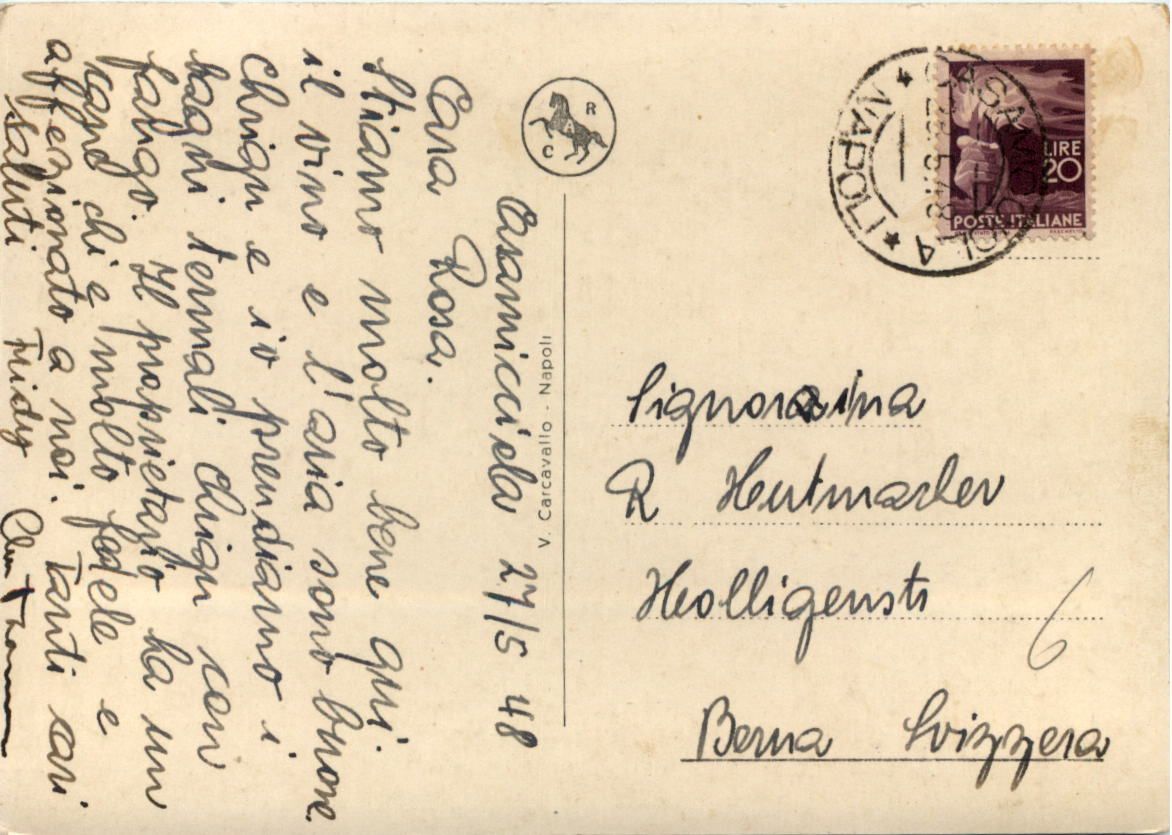 Casamicciola 27/5 48
Cara Rosa.
Stiamo molto bene qui.
il vino e l'aria sono buone.
Chiqu e io prendiamo i
bagni termali Chiqu con
fango. Il proprietario ha un
cane chi e molto fedele e
affezionato a noi. Tanti cari
saluti Fridy
V. Carcavallo - Napoli
R
C
CASAMICCIOLA
NAPOLI
5.48
LIRE
20
POSTE ITALIANE
Signorina
R Hutmacher
Holligenstr
6
Berna Svizzera